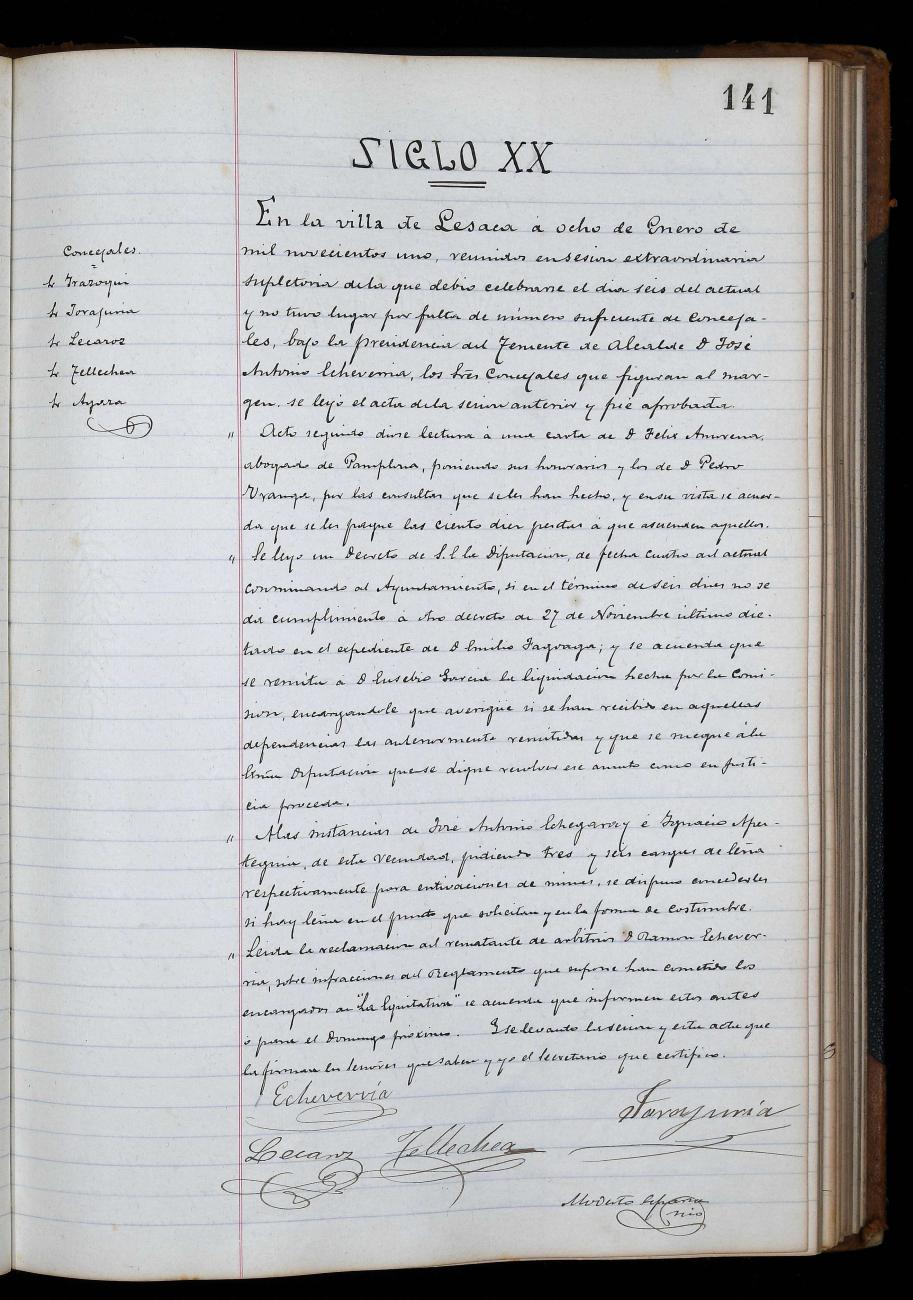 141
SIGLO XX
En la villa de Lesaca á ocho de Enero de
mil novecientos uno, reunidos en sesion extraordinaria
supletoria dela que debio celebrarse el dia seis del actual
y no tuvo lugar por falta de número suficiente de Conceja-
les, bajo la presidencia del Teniente de Alcalde D José
Antonio Echeverria, los tres Concejales que figuran al mar-
gen. se leyó el acta dela sesion anterior y fué aprobada.
Concejales.
Irazoqui
Torajuria
Lecaroz
Tellechea
Ayara
" Acto seguido diose lectura á una carta de D Felix Amorena,
abogado de Pamplona, poniendo sus honorarios y los de D Pedro
Uranga, por las consultas que seles han hecho, y en su vista se acuer-
da que se les pague las ciento diez pesetas á que ascienden aquellos.
" Se leyo un Decreto de S.E la Diputacion, de fecha cuatro del actual
conminando al Ayuntamiento, si en el término de seis dias no se
da cumplimiento á otro decreto de 27 de Noviembre último dic-
tado en el expediente de D Emilio Tagoaga; y se acuerda que
se remita á D Eusebio Garcia la liquidacion hecha por la Comi-
sion, encargandole que averigüe si se han recibido en aquellas
dependencias las anteriormente remitidas y que se ruegue á la
Excma Diputacion que se digne resolver ese asunto como en justi-
cia proceda.
" A las instancias de José Antonio Echegaray é Ignacio Aper-
teguia, de esta vecindad, pidiendo tres y seis cargas de leña
respectivamente para entivaciones de minas, se dispuso concederles
si hay leña en el punto que solicitan y en la forma de costumbre.
" Leida la reclamacion del rematante de arbitrios D Ramon Echever-
ria, sobre infracciones del Reglamento que supone han cometido los
encargados de "La Equitativa" se acuerda que informen estos antes
ó para el Domingo próximo. Y se levanto la sesion y esta acta que
la firman los Señores que saben y yo el Secretario que certifico.
Echeverría
Torajuria
Lecaroz Tellechea
Modesto